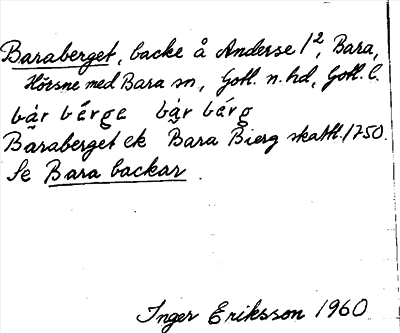 Baraberget, backe å Anderse 1², Bara,
Hörsne med Bara sn, Gotl. n. hd, Gotl. l.
bar bärge bar bärg
Baraberget ek Bara Bierg skattl. 1750.
Se Bara backar.
Inger Eriksson 1960